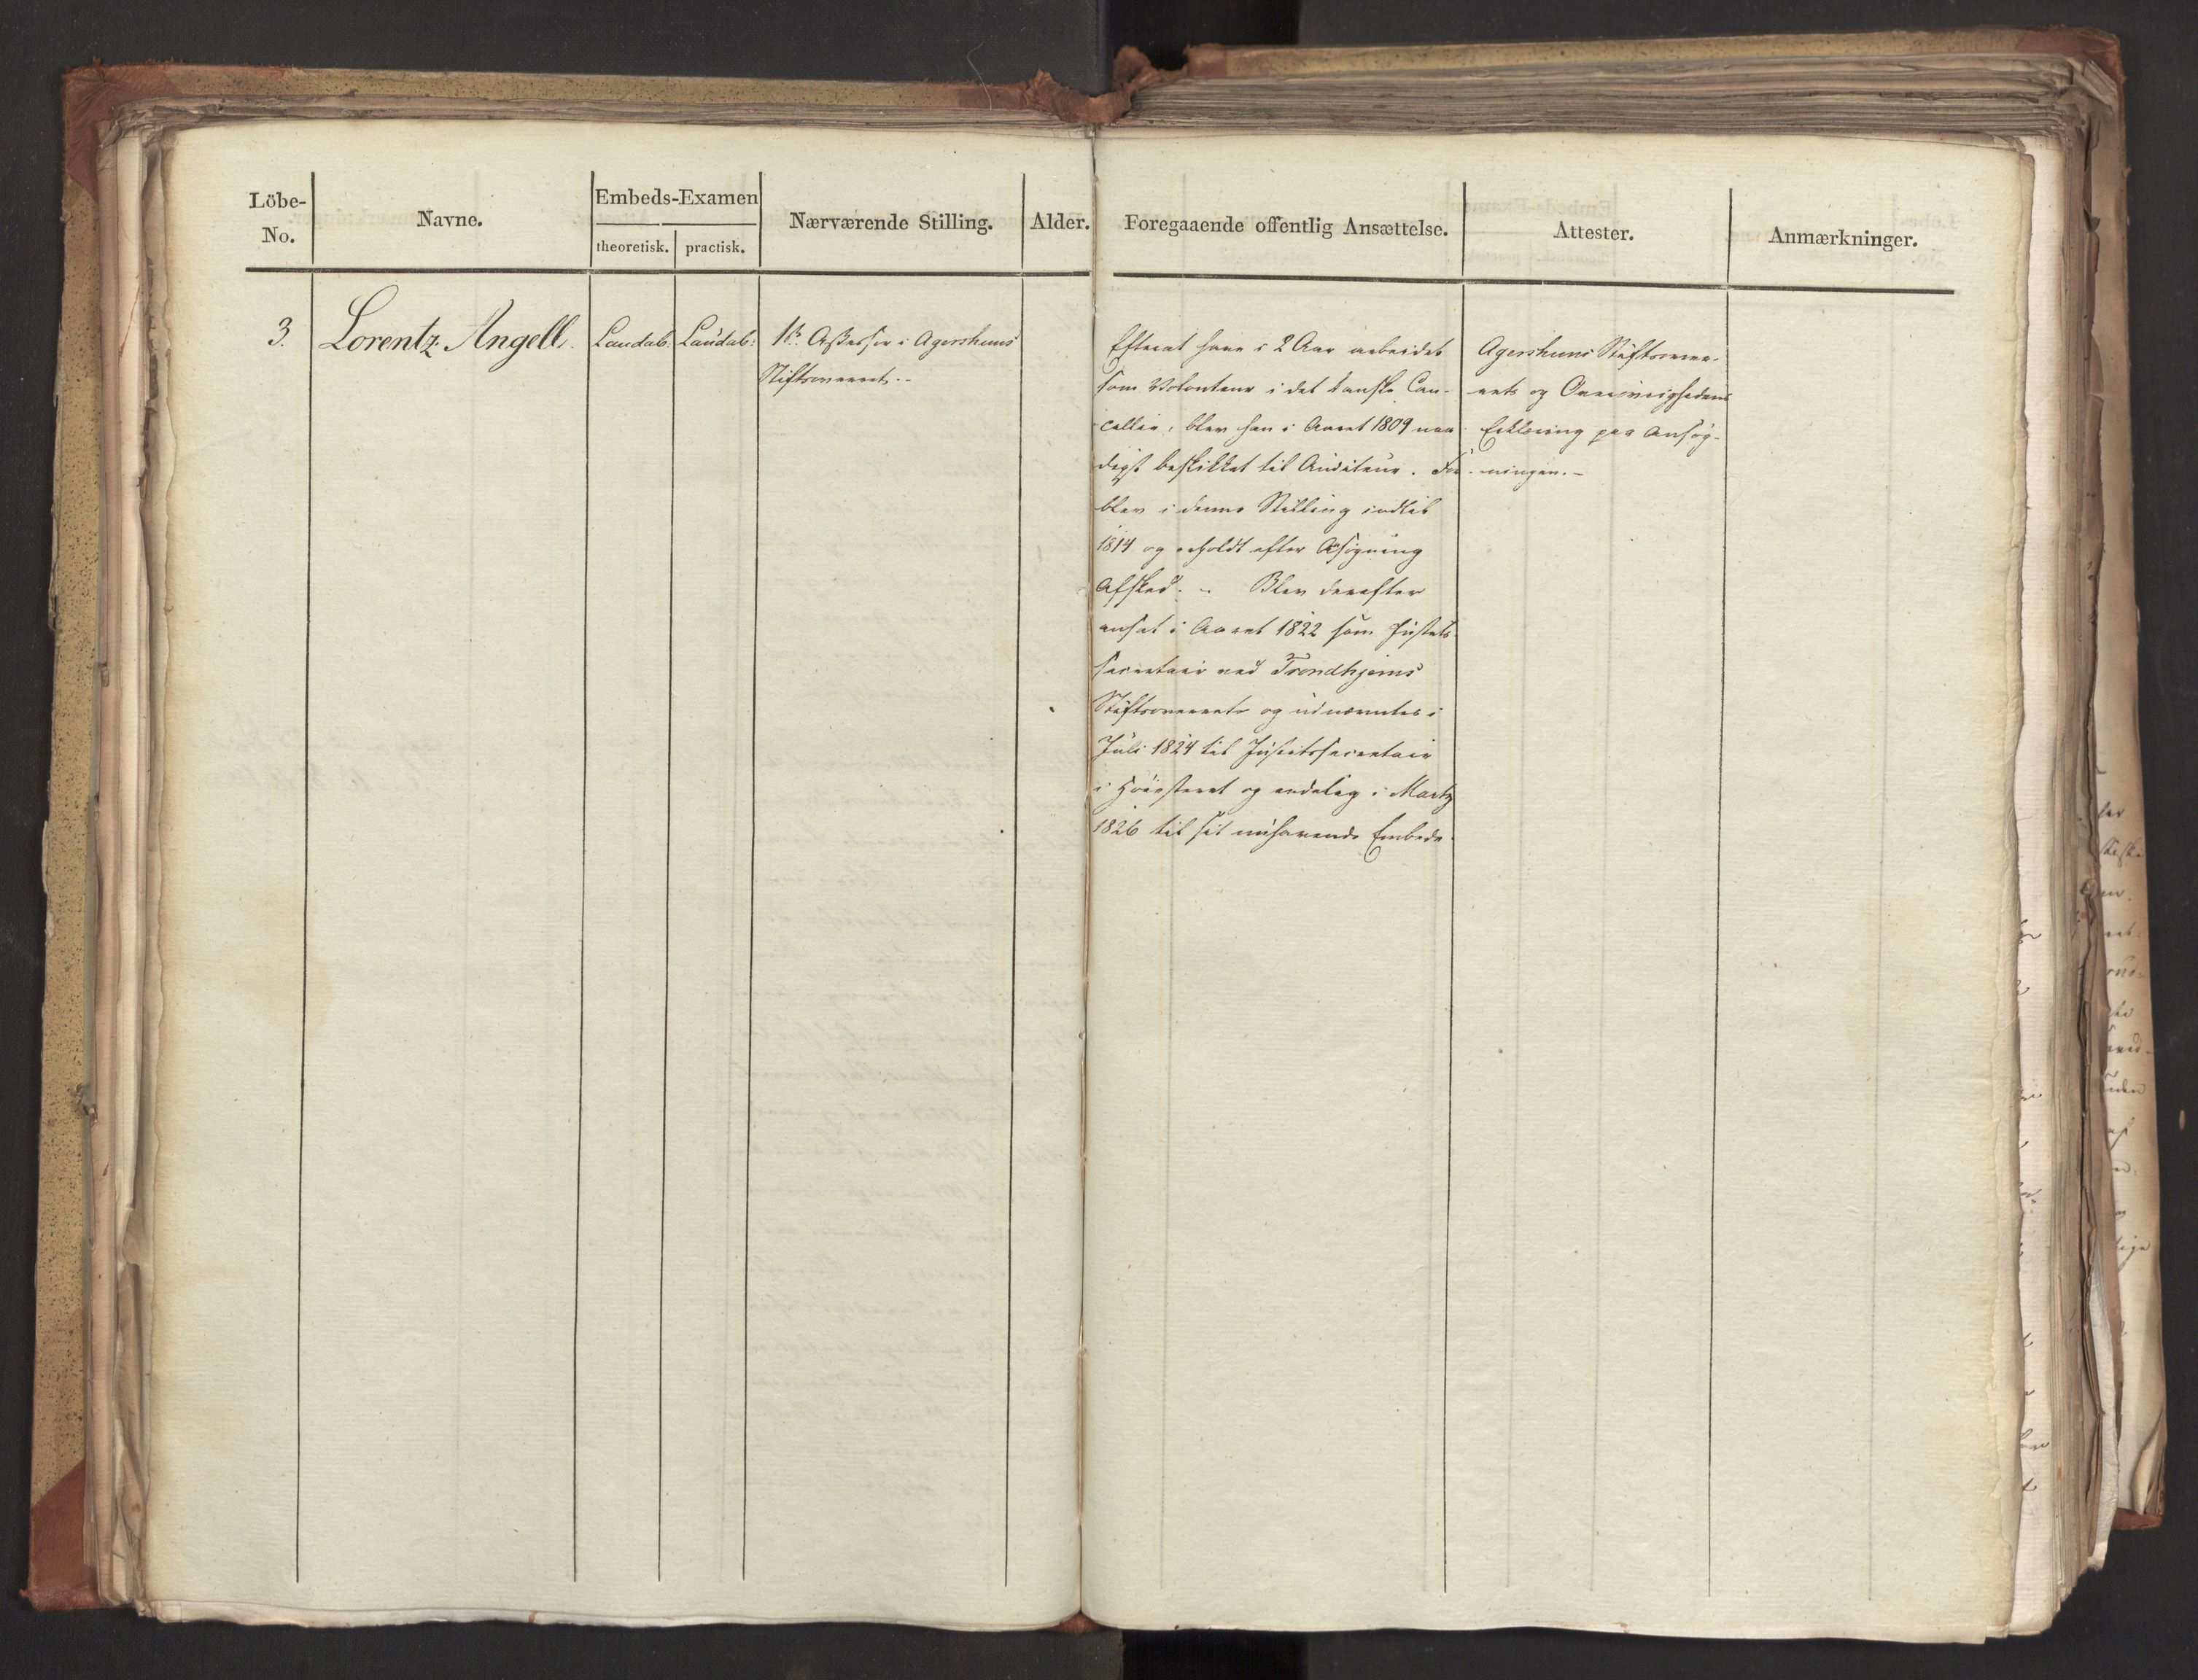 Löbe-
No.
Navne.
Embeds-Examen
theoretisk.
practisk.
Nærværende Stilling.
Alder.
Foregaaende offentlig Ansættelse.
Attester.
Anmærkninger.
3.
Lorentz Angell.
Laudab.
Laudab:
1ste Assessor i Agershuus
Stiftsoverret.-
Efterat have i 2 Aar arbeidet
som Volonteur i det danske Can-
cellie, blev han i Aaret 1809 naa-
digst beskikket til Auditeur. For-
blev i denne Stilling indtil
1814 og erholdt efter Ansøgning
Afsked. - Blev derefter
ansat i Aaret 1822 som Justits-
secretair ved Trondhjems
Stiftsoverret og udnævntes i
Juli 1824 til Justitssecretair
i Höiesteret og endelig i Martz
1826 til sit nuhavende Embede.
Agershuus Stiftsover-
rets og Overøvrighedens
Erklæring paa Ansøg-
ningen.-